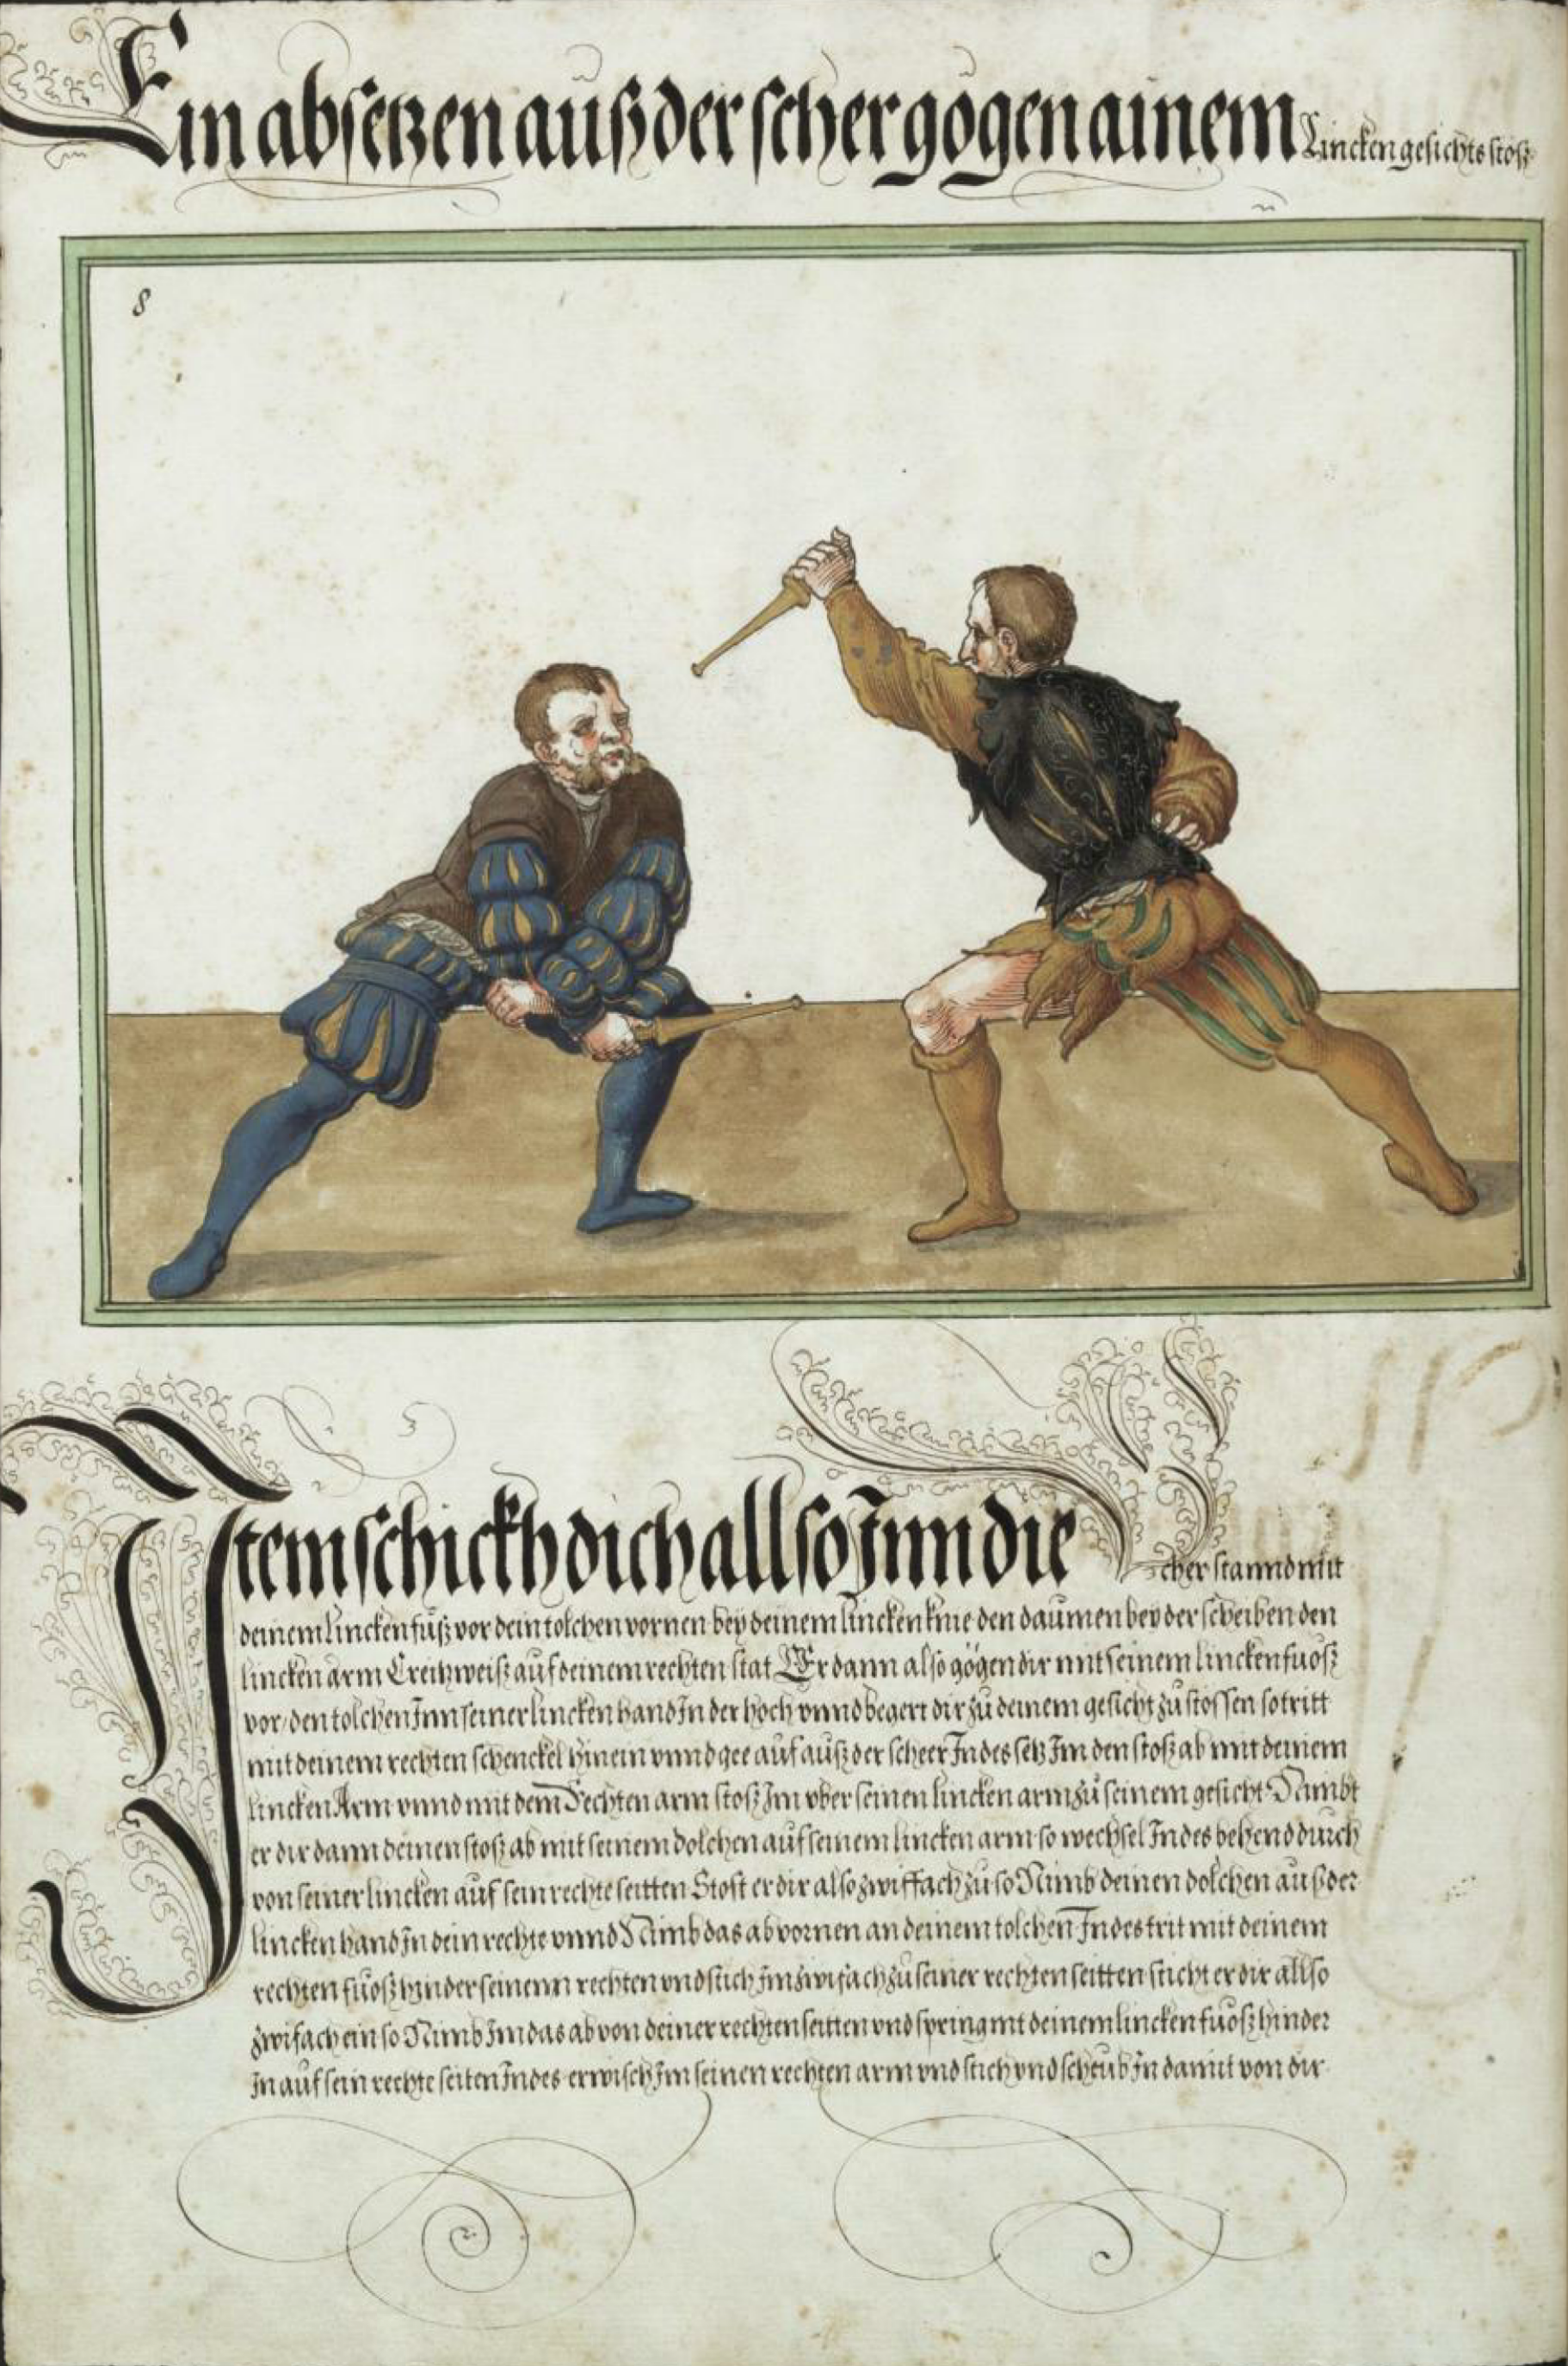 Ein absetzen auß der scher gögen ainem Lincken gesichts stoß
8
Item schickh dich allso Inn die
scher stannd mit
deinem lincken fuß vor dein tolchen vornen bey deinem lincken knie den daumen bey der scheiben den
lincken arm Creitzweiß auf deinem rechten stat Er dann also gögen dir mit seinem lincken fuoß
vor / den tolchen Inn seiner lincken hand In der hoch vnnd begert dir zu deinem gesicht zu stossen so tritt
mit deinem rechten schenckel hinein vnnd gee auf auß der scheer Indes setz Im den stoß ab mit deinem
lincken Arm vnnd mit dem Rechten arm stoß Im vber seinen lincken arm zu seinem gesicht Nimbt
er dir dann deinen stoß ab mit seinem dolchen auf seinem lincken arm so wechsel Indes behend durch
von seiner lincken auf sein rechte seitten Stost er dir also zwiffach zu so Nimb deinen dolchen auß der
lincken hand In dein rechte vnnd Nimb das ab vornen an deinem tolchen Indes trit mit deinem
rechten fuoß hinder seinenn rechten vnd stich Im zwifach zu seiner rechten seitten sticht er dir allso
zwifach ein so Nimb Im das ab von deiner rechten seitten vnd spring mt deinem lincken fuoß hinder
In auf sein rechte seiten Indes erwisch Im seinen rechten arm vnd stich vnd scheub In damit von dir